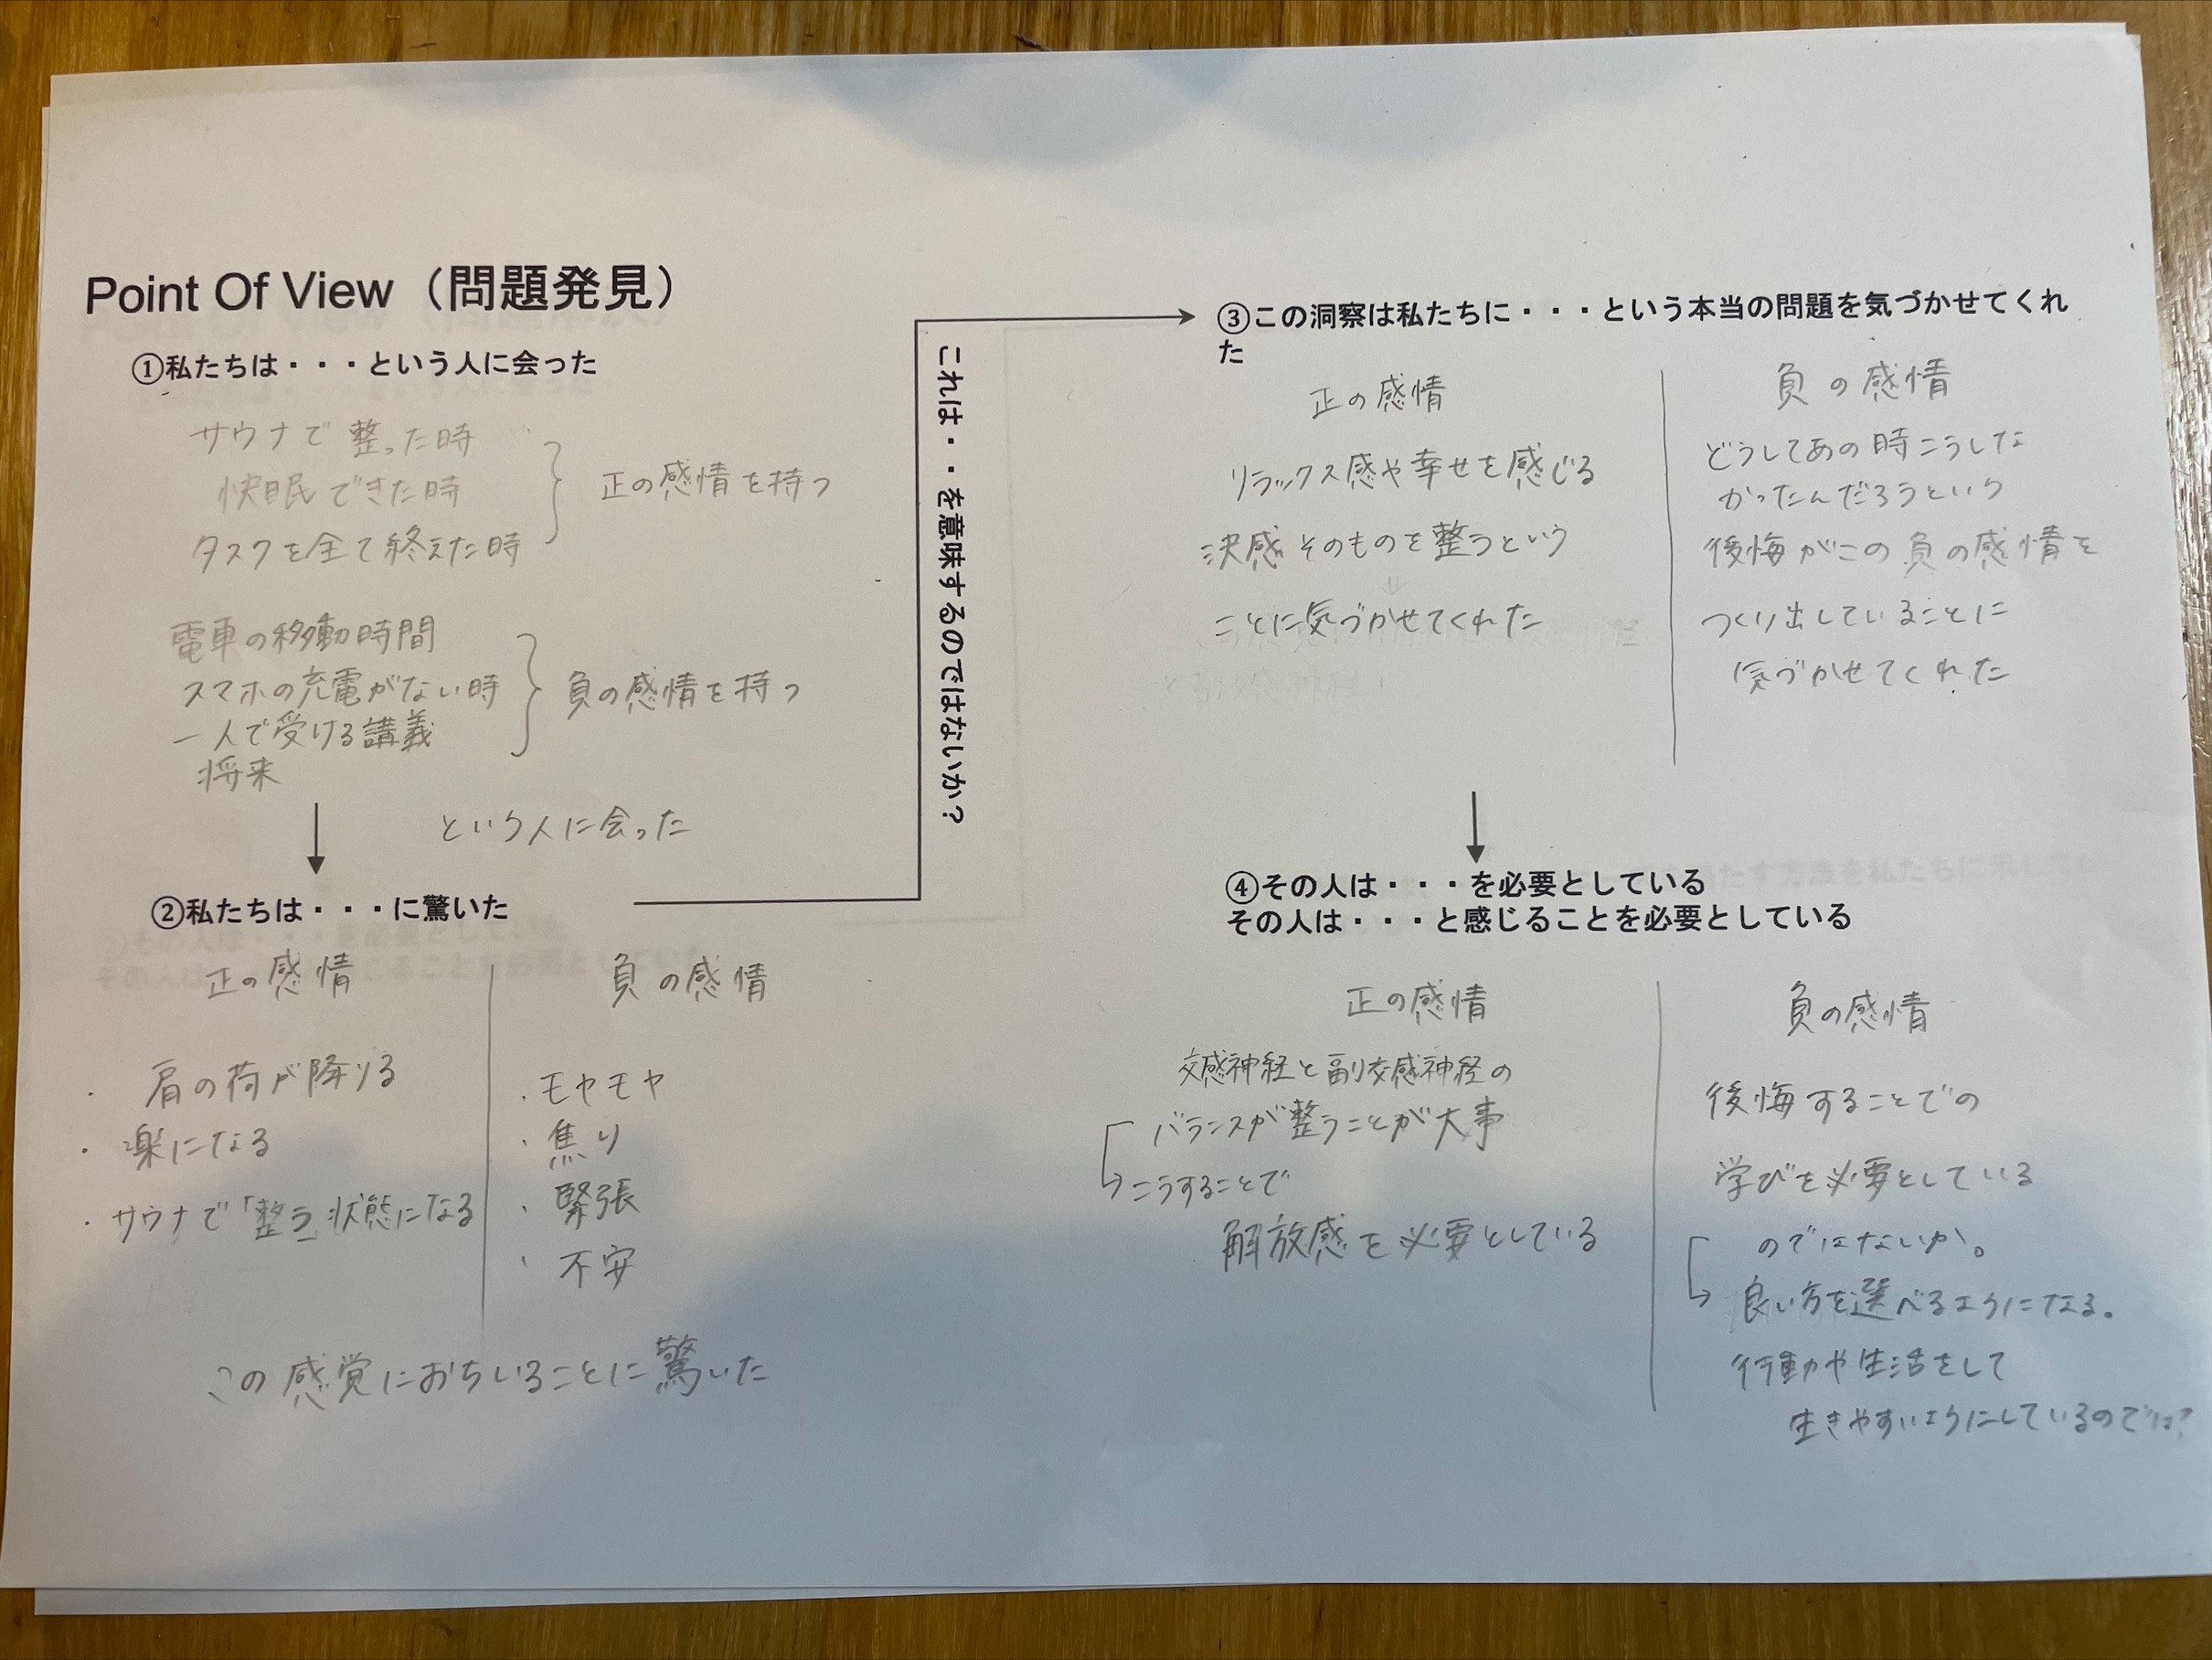 Point Of View（問題発見）
①私たちは・・・という人に会った
サウナで整った時
快眠できた時
タスクを全て終えた時
正の感情を持つ
電車の移動時間
スマホの充電がない時
一人で受ける講義
将来
負の感情を持つ
という人に会った
②私たちは・・・に驚いた
正の感情
・肩の荷が降りる
・楽になる
・サウナで「整う」状態になる
負の感情
・モヤモヤ
・焦り
・緊張
・不安
この感覚におちいることに驚いた
これは・・・を意味するのではないか？
③この洞察は私たちに・・・という本当の問題を気づかせてくれ
た
正の感情
リラックス感や幸せを感じる
決感そのものを整うという
ことに気づかせてくれた
負の感情
どうしてあの時こうしな
かったんだろうという
後悔がこの負の感情を
つくり出していることに
気づかせてくれた
④その人は・・・を必要としている
その人は・・・と感じることを必要としている
正の感情
交感神経と副交感神経の
バランスが整うことが大事
こうすることで
解放感を必要としている
負の感情
後悔することでの
学びを必要としている
のではないか。
良い方を選べるようになる。
行動や生活をして
生きやすいようにしているのでは？